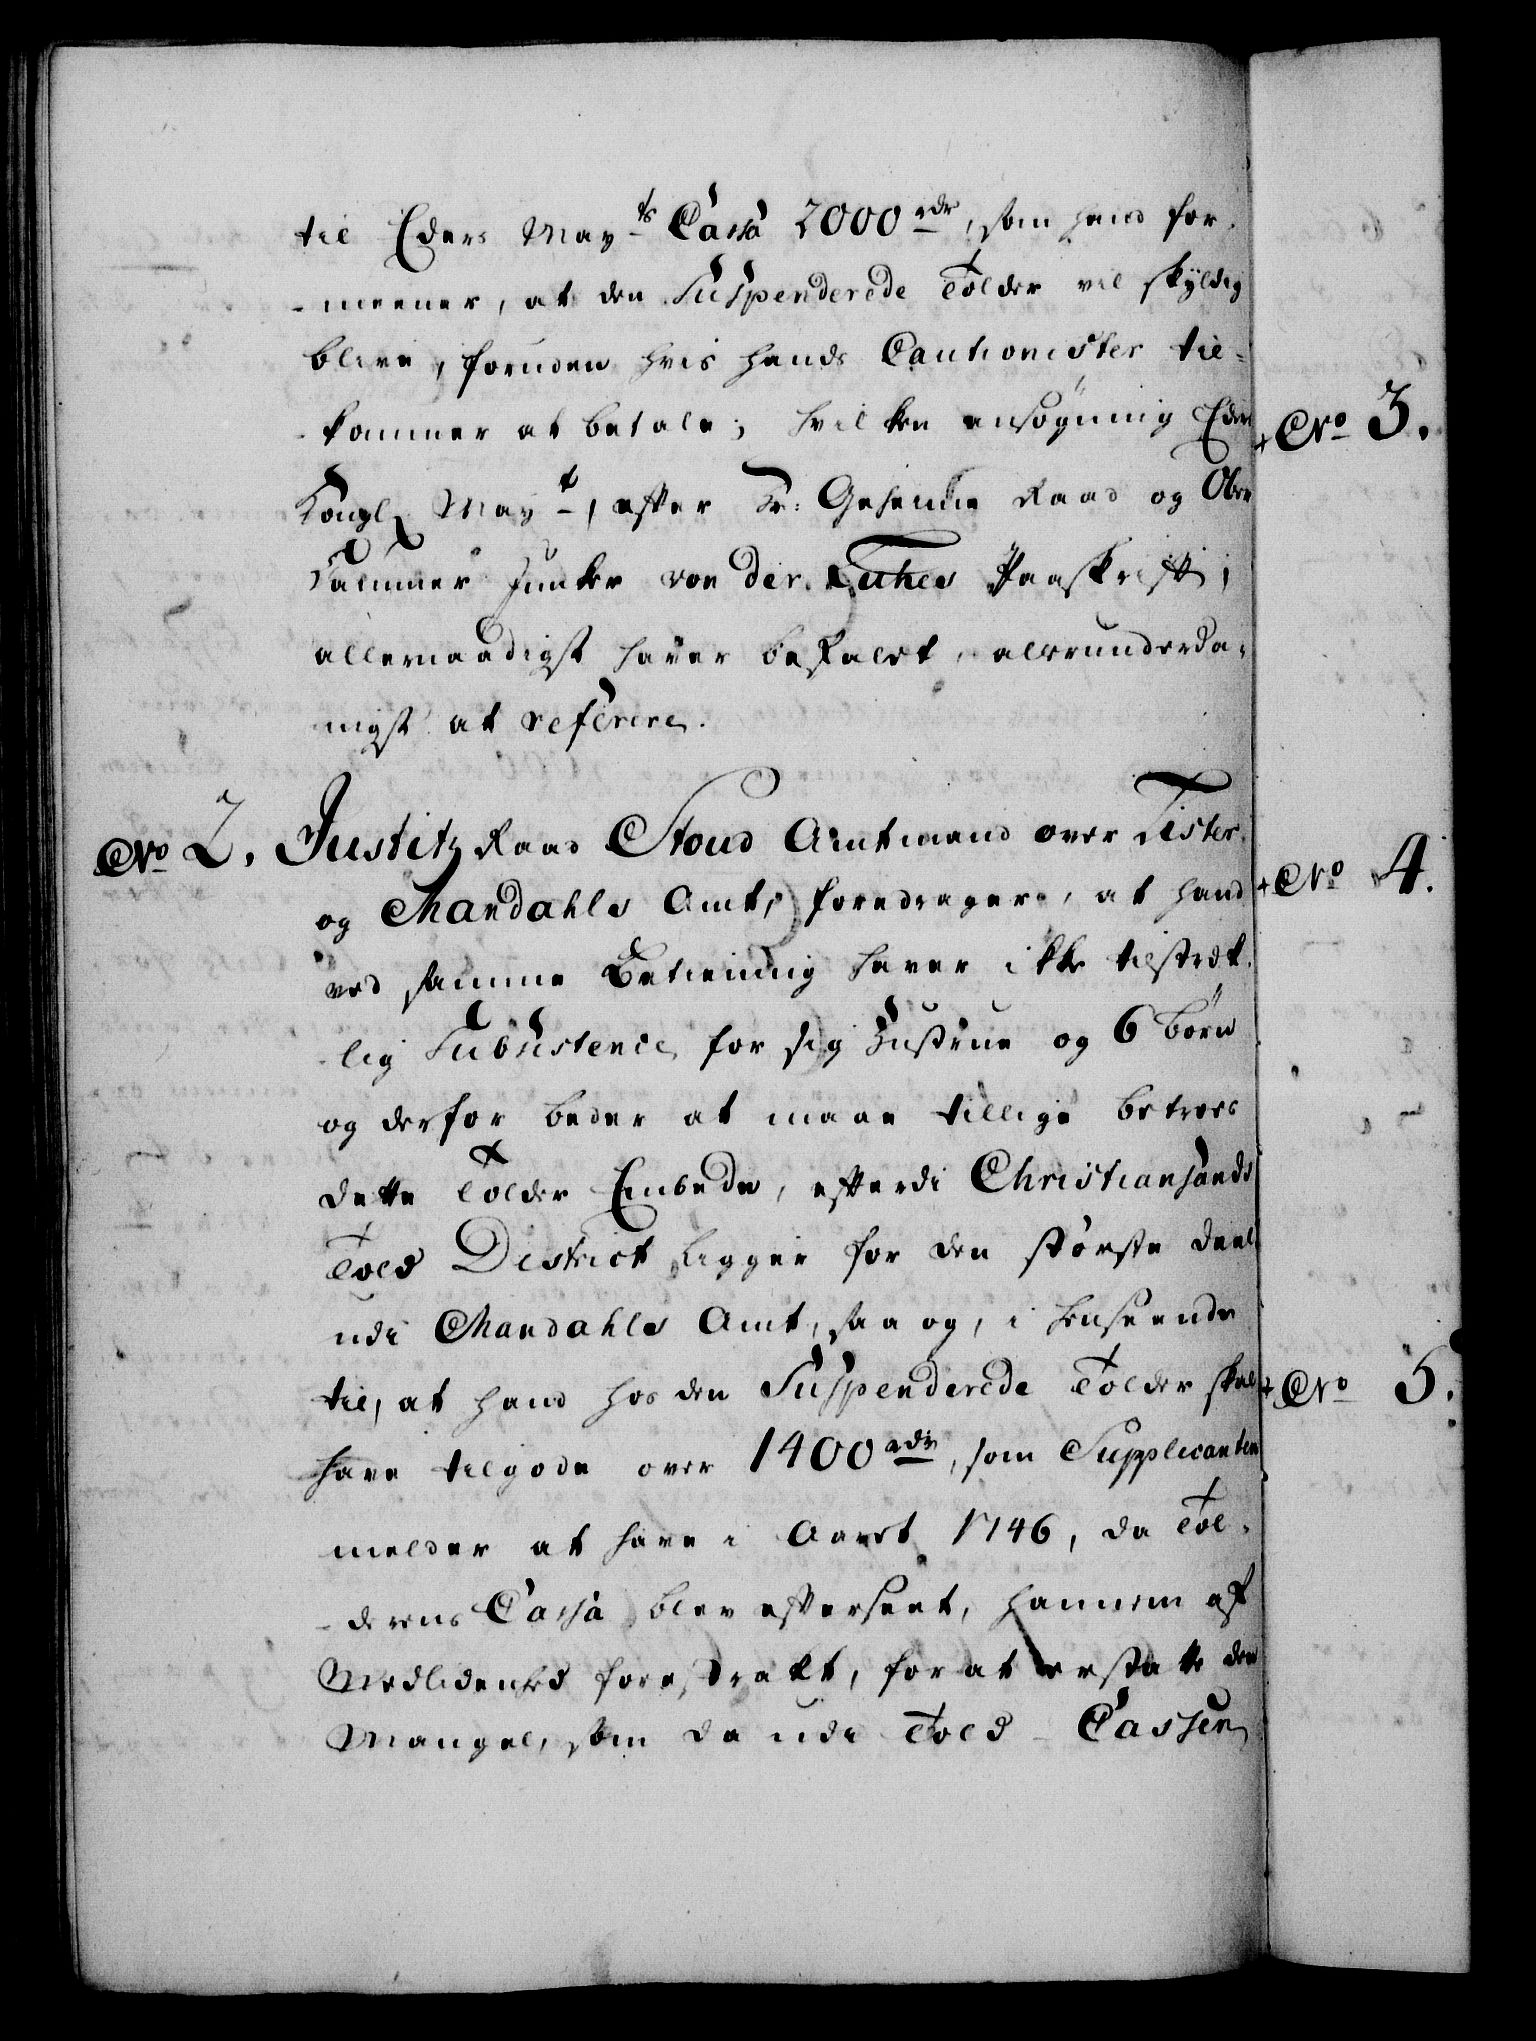 til Eders May<sup>ts</sup> Cassa 2000 rdr, som hand for-
-meener, at den Suspenderede Tolder vil skyldig
blive, foruden hvis hands Cautionister til-
kommer at betale; hvilken ansøgning Eders
Kongl May<sup>t</sup>, efter Hr: Geheime Raad og Ober
Kammer Junker von der Lühes Paaskrift,
allernaadigst haver befalet, allerunderda-
nigst at referere.
No 2. Justitz Raad Stoud Amtmand over Lister
og Mandahls Amt, foredrager, at hand
ved samme Betiening haver ikke tilstræk-
-lig Subsistence for sig Hustrue og 6 Børn
og derfor beder at maae tillige betroes
dette Tolder Embede, efterdi Christiansands
Told District ligger for den største deel
udi Mandahls Amt, saa og, i henseende
til, at hand hos den Suspenderede Tolder skal
have tilgode over 1400 rdr, som Supplicanten
melder at have i Aaret 1746, da Tol-
-derens Cassa blev efterseet, hannem af
Medlidenhed forestrakt, for at erstatte den
Mangel, som da udi Told-Cassen
+ No 3.
+ No 4.
+ No 5.